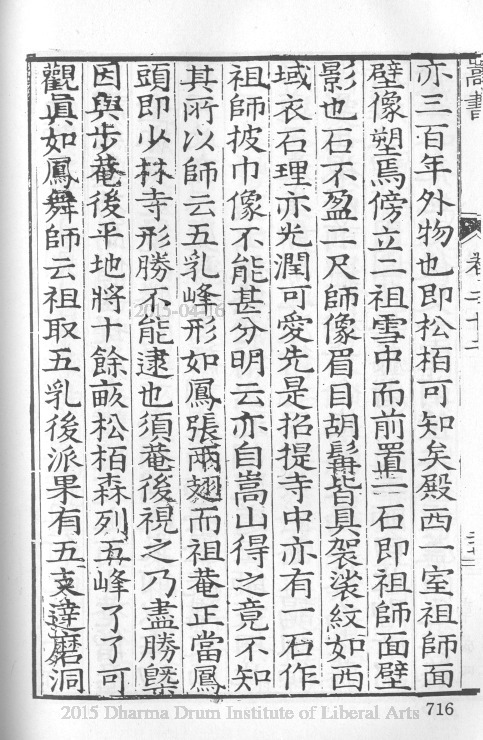 嵩書
卷二十二
亦三百年外物也即松栢可知矣殿西一室祖師面
壁像塑焉傍立二祖雪中而前置一石即祖師面壁
影也石不盈二尺師像眉目胡鬚皆具袈裟紋如西
域衣石理亦光潤可愛先是招提寺中亦有一石作
祖師披巾像不能甚分明云亦自嵩山得之竟不知
其所以師云五乳峰形如鳳張兩翅而祖菴正當鳳
頭即少林寺形勝不能逮也須菴後視之乃盡勝槩
因與步菴後平地將十餘畝松栢森列五峰了了可
觀眞如鳳舞師云祖取五乳後派果有五支達磨洞
2015-04-16
2015 Dharma Drum Institute of Liberal Arts
716